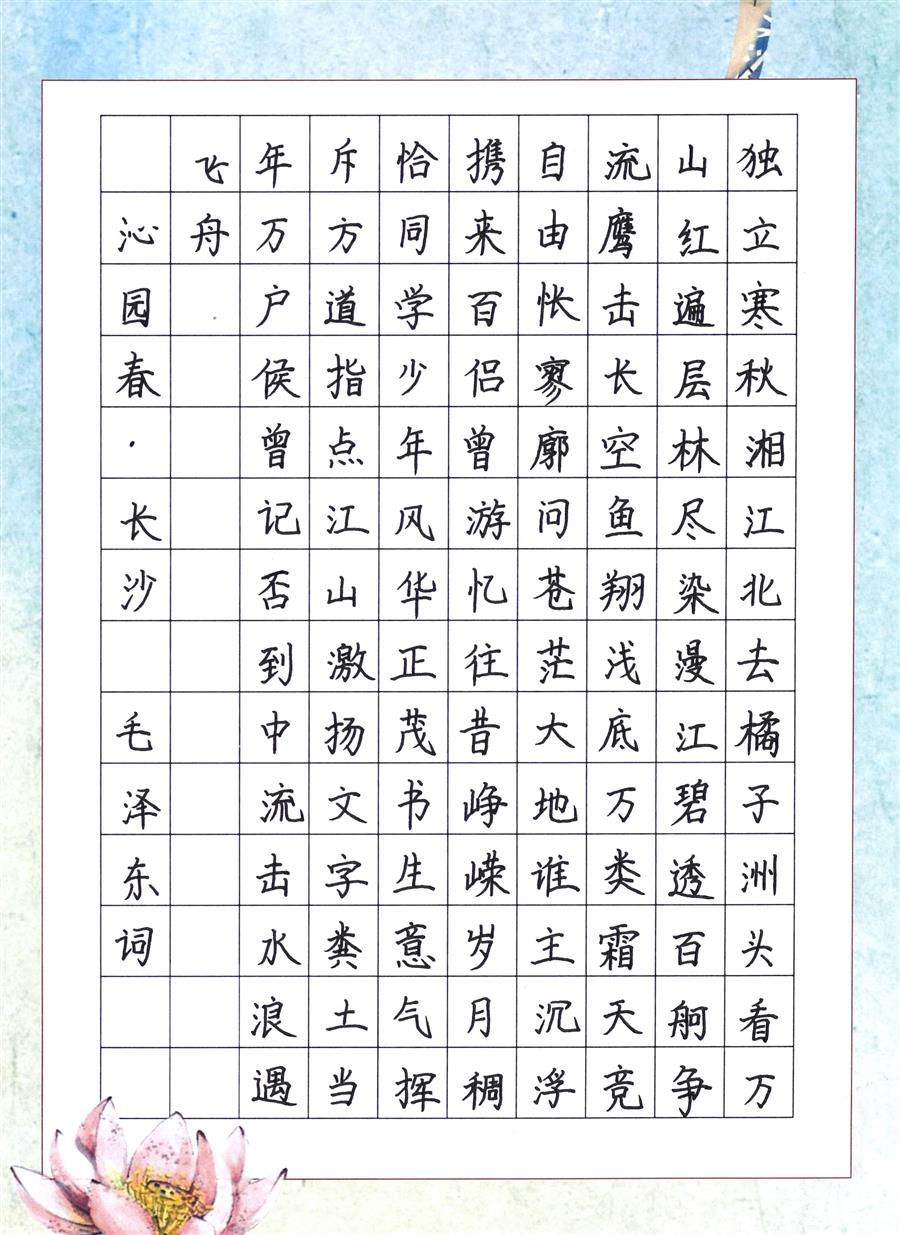 独立寒秋湘江北去橘子洲头看万
山红遍层林尽染漫江碧透百舸争
流鹰击长空鱼翔浅底万类霜天竞
自由怅寥廓问苍茫大地谁主沉浮
携来百侣曾游忆往昔峥嵘岁月稠
恰同学少年风华正茂书生意气挥
斥方道指点江山激扬文字粪土当
年万户侯曾记否到中流击水浪遇
飞舟
沁园春·长沙 毛泽东词